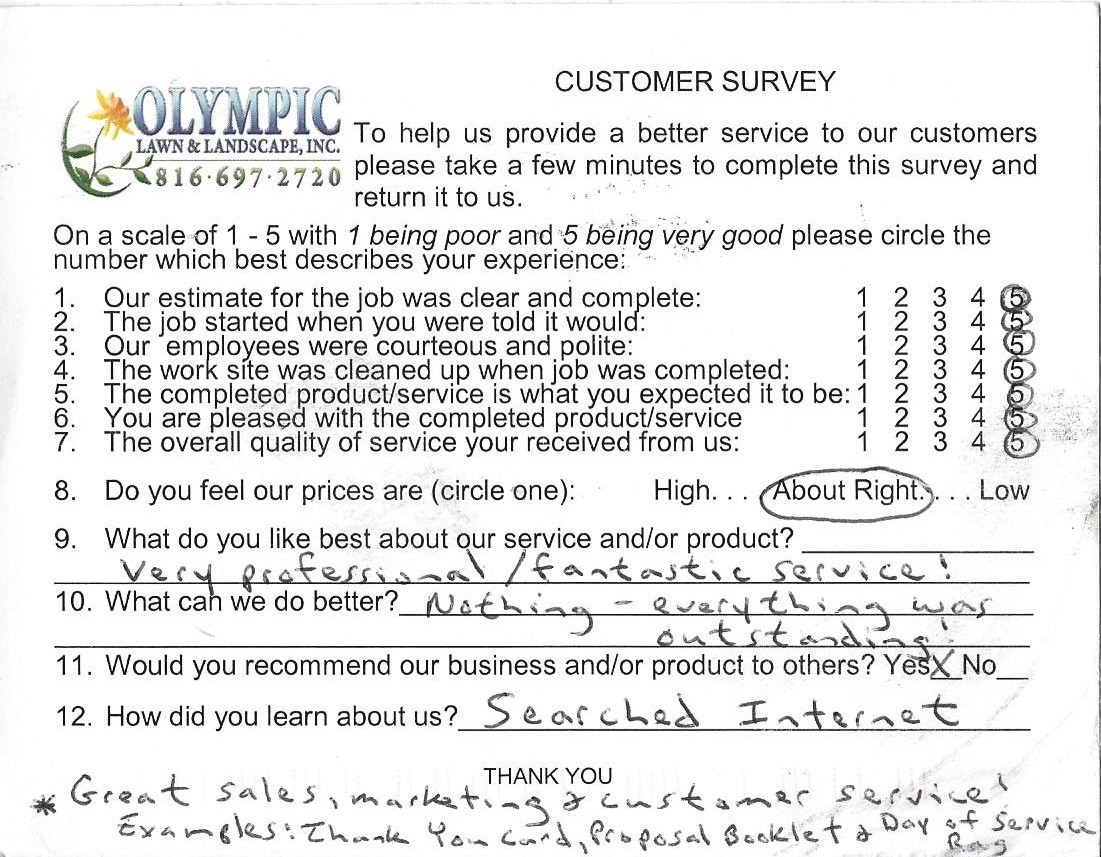 CUSTOMER SURVEY
OLYMPIC
LAWN & LANDSCAPE, INC.
816·697·2720
To help us provide a better service to our customers
please take a few minutes to complete this survey and
return it to us.
On a scale of 1 - 5 with 1 being poor and 5 being very good please circle the
number which best describes your experience:
1. Our estimate for the job was clear and complete: 1 2 3 4 5
2. The job started when you were told it would: 1 2 3 4 5
3. Our employees were courteous and polite: 1 2 3 4 5
4. The work site was cleaned up when job was completed: 1 2 3 4 5
5. The completed product/service is what you expected it to be: 1 2 3 4 5
6. You are pleased with the completed product/service 1 2 3 4 5
7. The overall quality of service your received from us: 1 2 3 4 5
8. Do you feel our prices are (circle one): High. . . About Right. . . . Low
9. What do you like best about our service and/or product?
Very professional/fantastic service!
10. What can we do better? Nothing - everything was
outstanding!
11. Would you recommend our business and/or product to others? Yes X No
12. How did you learn about us? Searched Internet
THANK YOU
* Great sales, marketing & customer service!
Examples: Thank You Card, Proposal Booklet & Day of Service
Bag